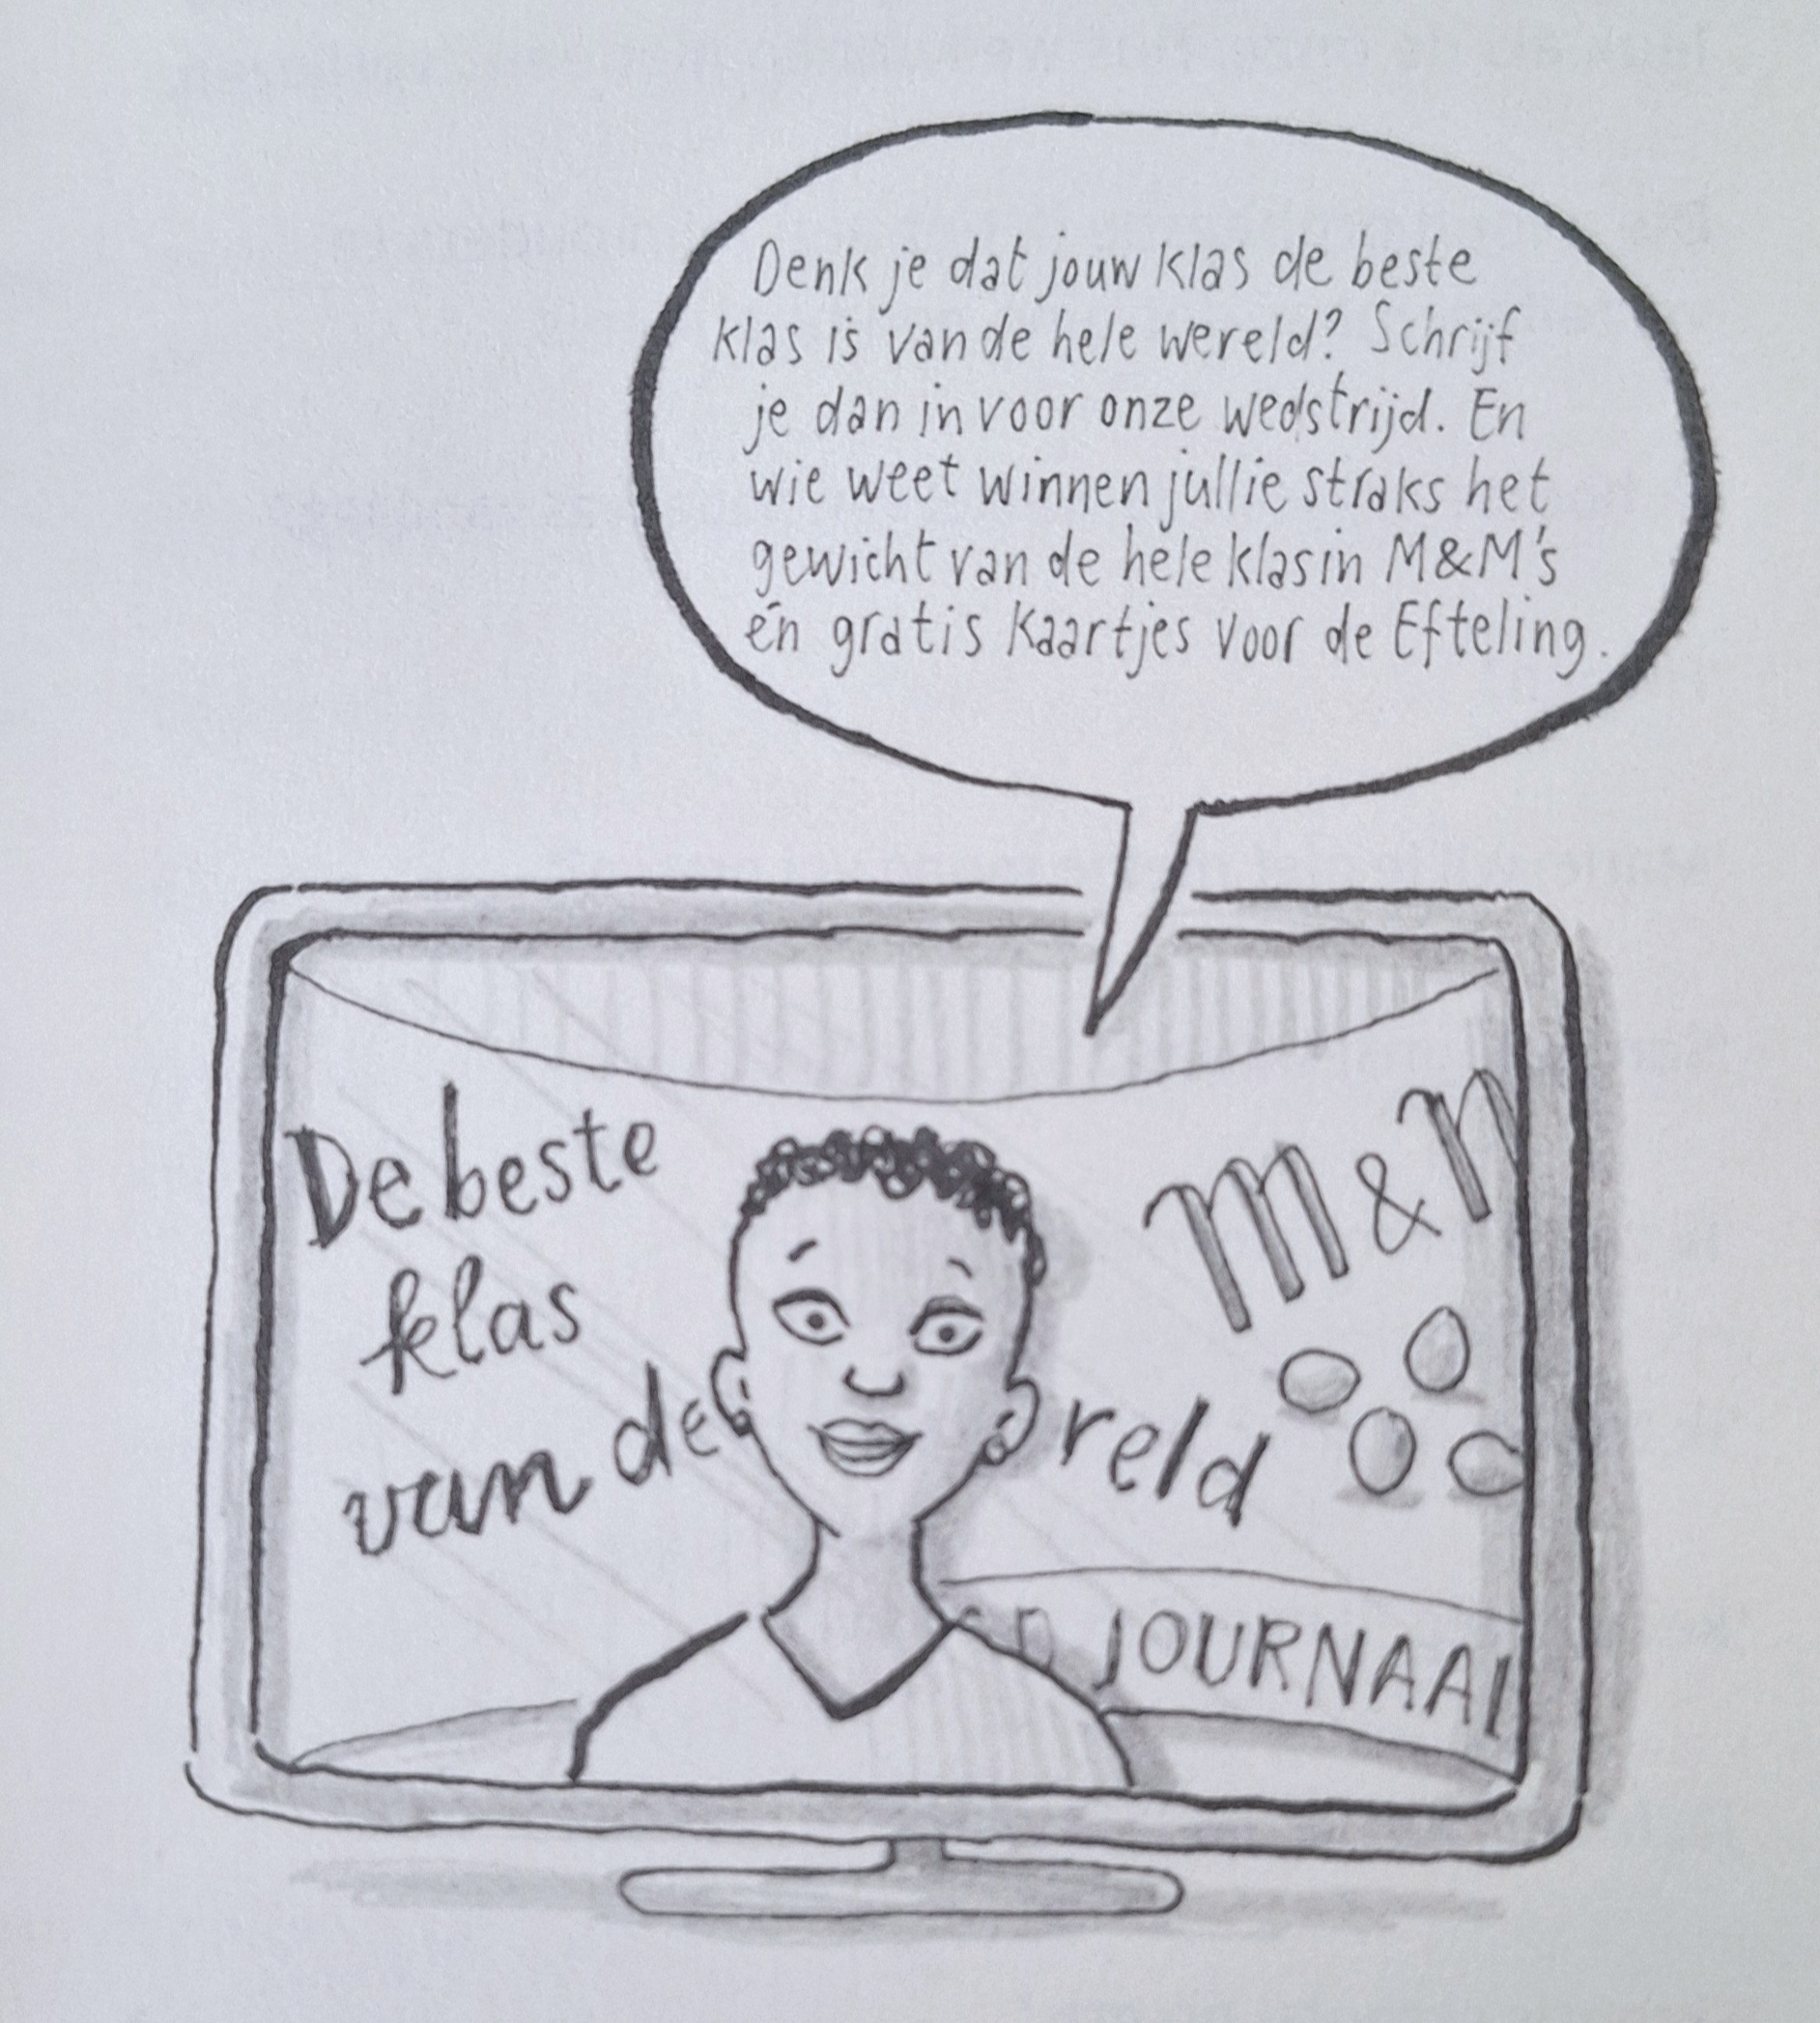 Denk je dat jouw klas de beste
klas is van de hele wereld? Schrijf
je dan in voor onze wedstrijd. En
wie weet winnen jullie straks het
gewicht van de hele klas in M&M's
én gratis kaartjes voor de Efteling.
De beste
klas
van de reld
M&M
JOURNAAL